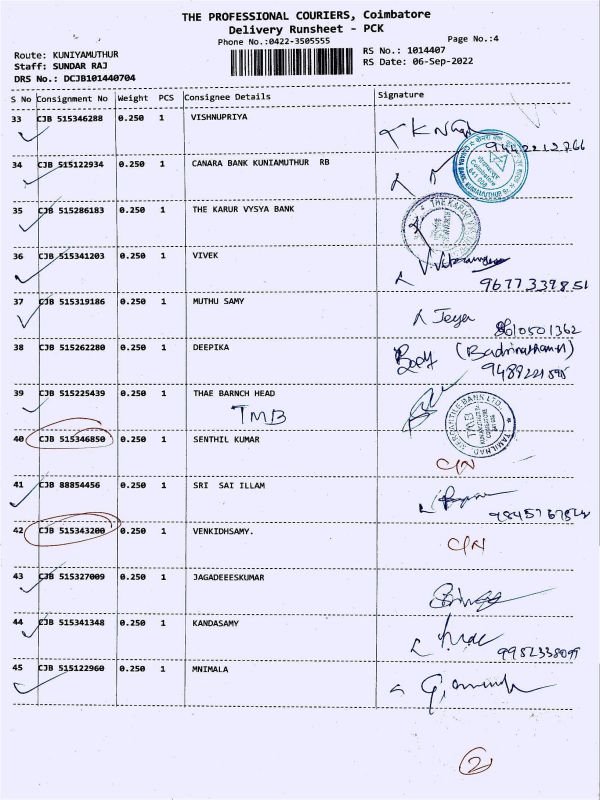 THE PROFESSIONAL COURIERS, Coimbatore
Delivery Runsheet - PCK
Phone No.:0422-3505555 Page No.:4
Route: KUNIYAMUTHUR RS No.: 1014407
Staff: SUNDAR RAJ RS Date: 06-Sep-2022
DRS No.: DCJB101440704
S No Consignment No Weight PCS Consignee Details Signature
33 CJB 515346288 0.250 1 VISHNUPRIYA
9442212766
34 CJB 515122934 0.250 1 CANARA BANK KUNIAMUTHUR RB
35 CJB 515286183 0.250 1 THE KARUR VYSYA BANK
36 CJB 515341203 0.250 1 VIVEK
9677339851
37 CJB 515319186 0.250 1 MUTHU SAMY Jeya
8610501362
38 CJB 515262280 0.250 1 DEEPIKA
39 CJB 515225439 0.250 1 THAE BARNCH HEAD
TMB
40 CJB 515346850 0.250 1 SENTHIL KUMAR
C/N
41 CJB 88854456 0.250 1 SRI SAI ILLAM
42 CJB 515343200 0.250 1 VENKIDHSAMY.
C/N
43 CJB 515327009 0.250 1 JAGADEEESKUMAR
44 CJB 515341348 0.250 1 KANDASAMY
9952338099
45 CJB 515122960 0.250 1 MNIMALA
2